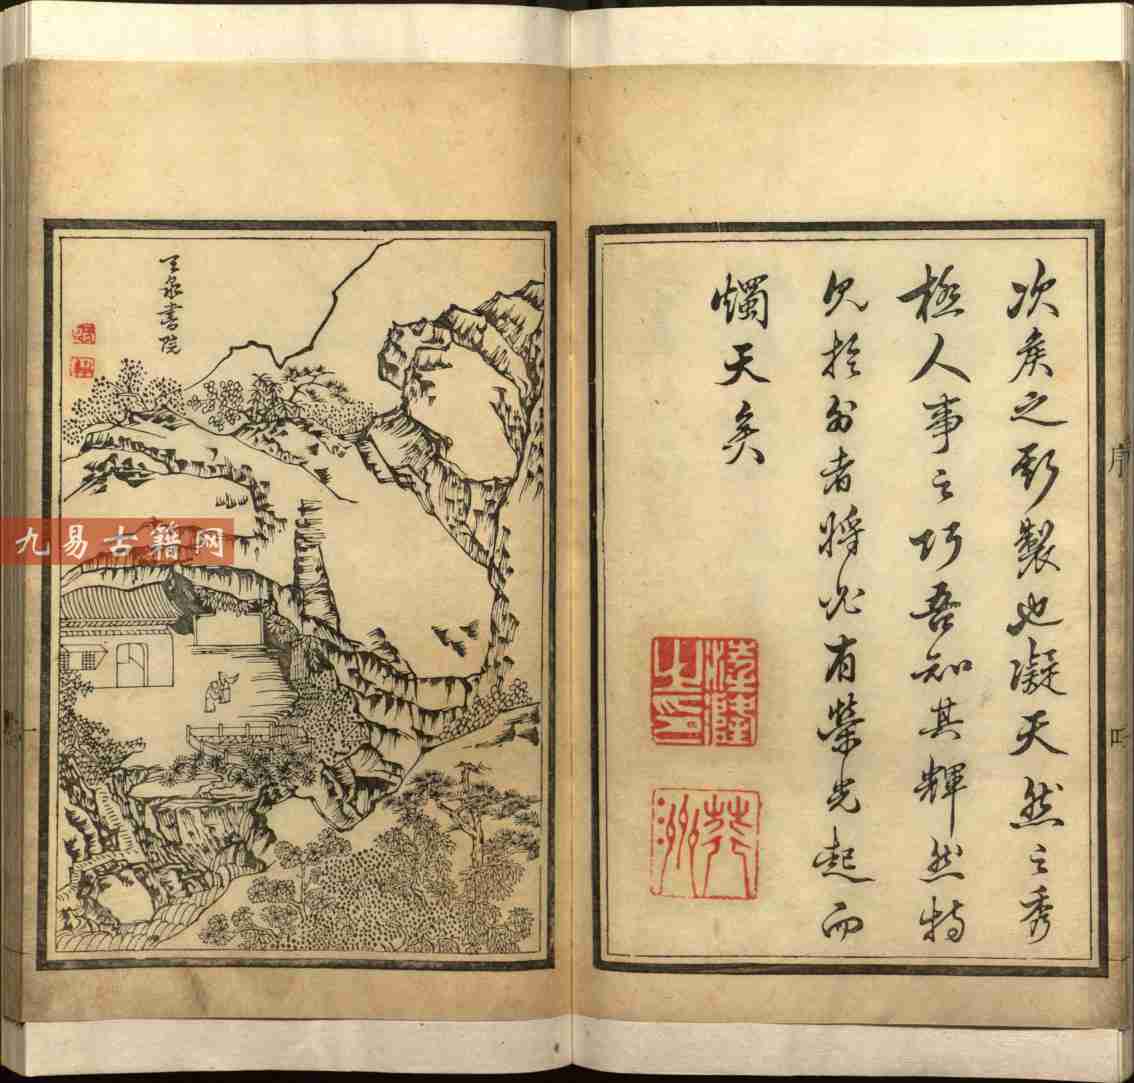 次矣之新製也凝天然之秀
極人事之巧吾知其輝然特
見於外者將必有榮光起而
燭天矣
書院
九易古籍网
序